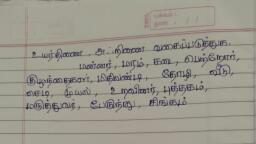 உயர்திணை அஃறிணை வகைப்படுத்துக.
மன்னர், மரம், கடை, பெற்றோர்,
குழந்தைகள், மிதிவண்டி, தோழி, வீடு,
செடி, முயல், உறவினர், புத்தகம்,
மருத்துவர், பேருந்து, சிங்கம்